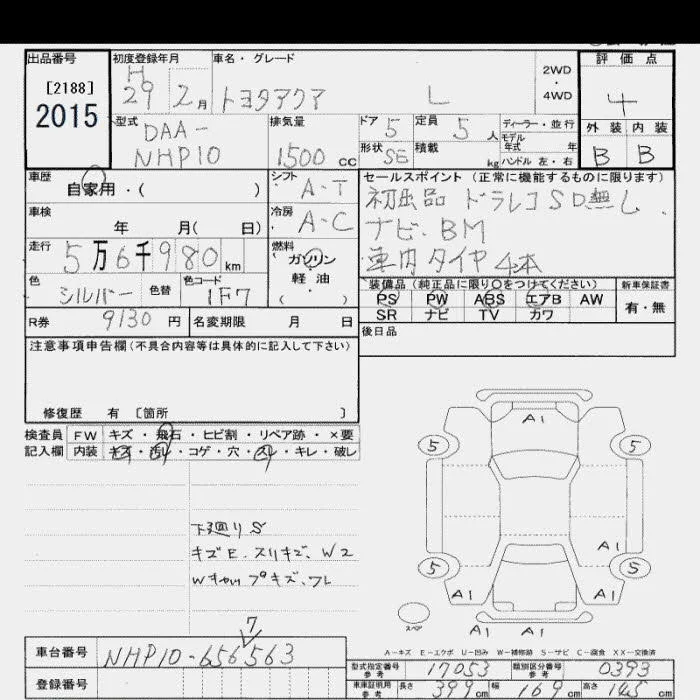 出品番号
[2188]
2015
初度登録年月
H
29年 2月
車名・グレード
トヨタアクア L
2WD
・
4WD
評価点
4
外装 内装
B B
型式
DAA-
NHP10
排気量
1500 cc
ドア 5
定員 5 人
ディーラー・並行
モデル
年式 年
形状 5B
積載 kg
ハンドル 左・右
車歴
自家用・( )
シフト
A-T
車検
年 月( 日)
冷房
A-C
走行
5万6千980 km
燃料
ガソリン
軽油
( )
色
シルバー
色替
色コード
1F7
R券 9130 円
名変期限 月 日
セールスポイント(正常に機能するものに限ります)
初出品 ドラレコSD無し
ナビ、BM
車内タイヤ4本
装備品(純正品に限り○をつけてください)
PS PW ABS エアB AW
SR ナビ TV カワ
新車保証書
有・無
後日品
注意事項申告欄(不具合内容等は具体的に記入して下さい)
修復歴 有 〔箇所 〕
検査員 FW キズ・飛石・ヒビ割・リペア跡・×要
記入欄 内装 キズ・汚レ・コゲ・穴・スレ・キレ・破レ
下廻りS
キズE、スリキズ、W2
A1
5 5
A1
5 5
A1 A1
スペア
A1 A1
A-キズ E-エクボ U-凹み W-補修跡 S-サビ C-腐食 XX-交換済
7
車台番号 NHP10-656563
登録番号
型式指定番号
参考
17053
類別区分番号
参考
0393
車庫証明用
参考
長さ 399 cm
幅 169 cm
高さ 145 cm